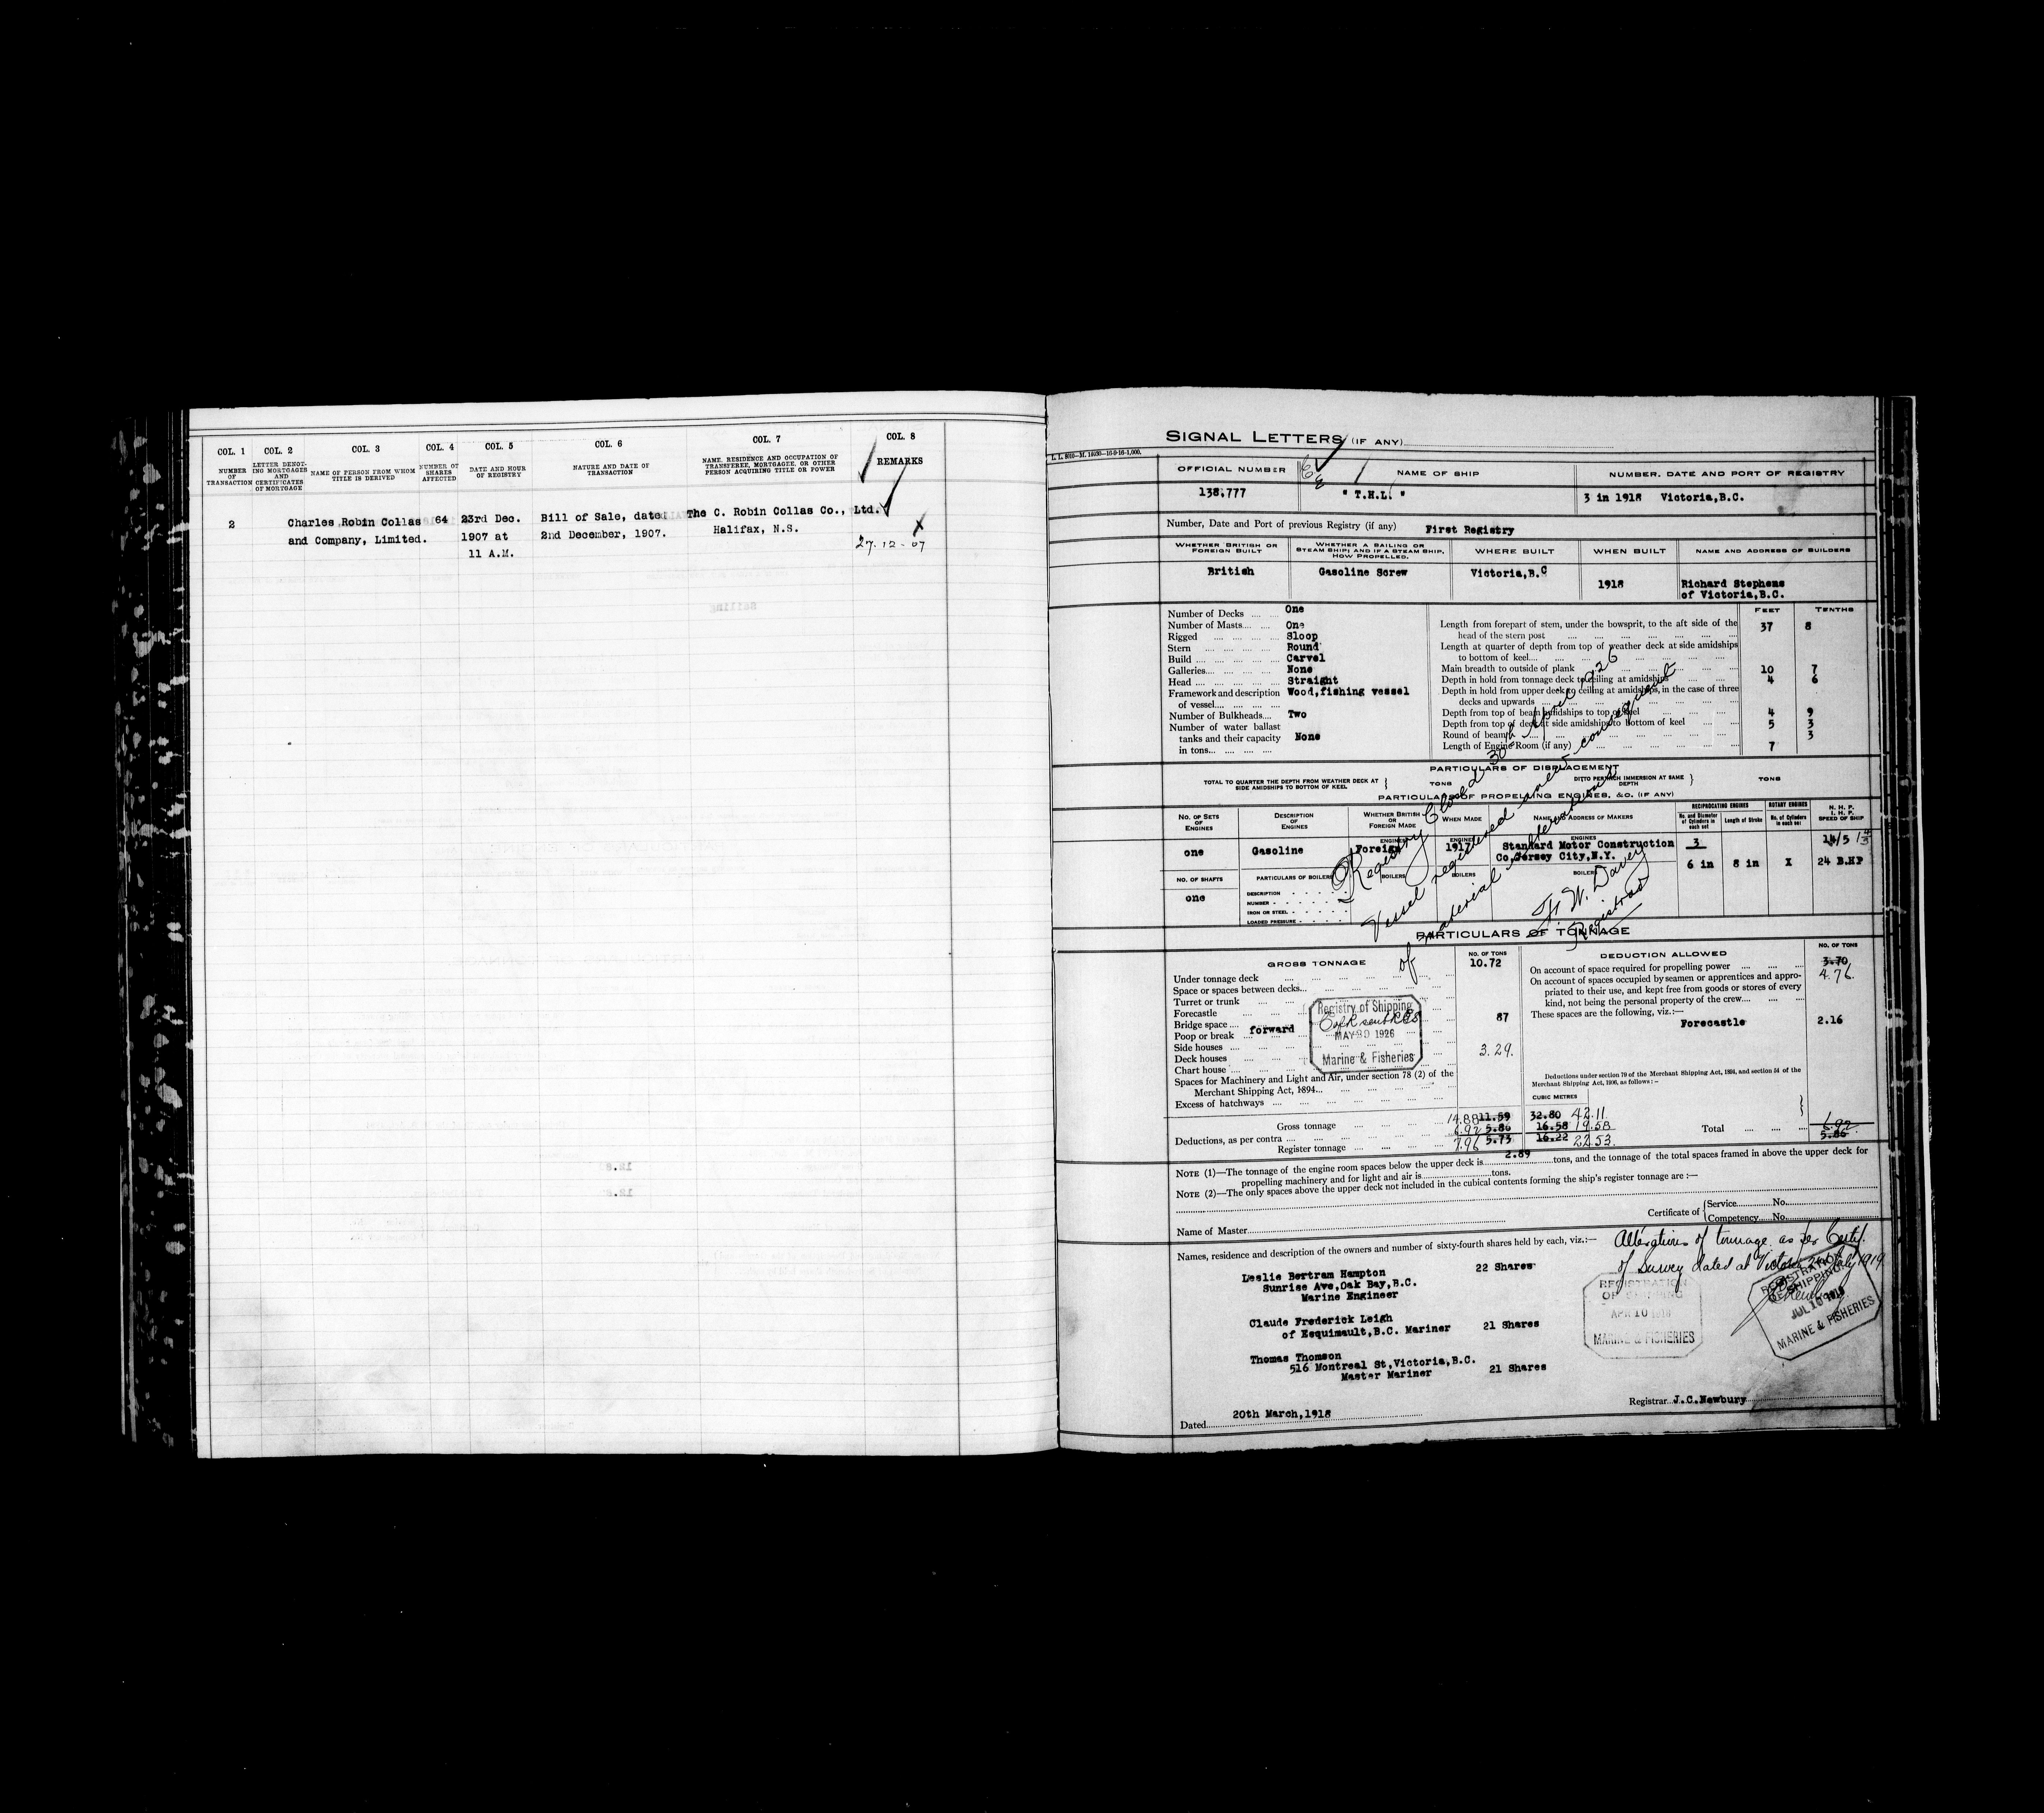 COL. 1
NUMBER
OF
TRANSACTION
COL. 2
LETTER DENOT-
ING MORTGAGES
AND
CERTIFICATES
OF MORTGAGE
COL. 3
NAME OF PERSON FROM WHOM
TITLE IS DERIVED
COL. 4
NUMBER OF
SHARES
AFFECTED
COL. 5
DATE AND HOUR
OF REGISTRY
COL. 6
NATURE AND DATE OF
TRANSACTION
COL. 7
NAME, RESIDENCE AND OCCUPATION OF
TRANSFEREE, MORTGAGEE, OR OTHER
PERSON ACQUIRING TITLE OR POWER
COL. 8
REMARKS
2
Charles Robin Collas
and Company, Limited.
64
23rd Dec.
1907 at
11 A.M.
Bill of Sale, dated
2nd December, 1907.
The C. Robin Collas Co., Ltd.
Halifax, N.S.
27-12-07
SIGNAL LETTERS (IF ANY)
OFFICIAL NUMBER
NAME OF SHIP
NUMBER, DATE AND PORT OF REGISTRY
138,777
" T.H.L. "
3 in 1918 Victoria,B.C.
Number, Date and Port of previous Registry (if any) First Registry
WHETHER BRITISH OR
FOREIGN BUILT
WHETHER A SAILING OR
STEAM SHIP; AND IF A STEAM SHIP,
HOW PROPELLED.
WHERE BUILT
WHEN BUILT
NAME AND ADDRESS OF BUILDERS
British
Gasoline Screw
Victoria,B.C
1918
Richard Stephens
of Victoria,B.C.
Number of Decks One
Number of Masts One
Rigged Sloop
Stern Round
Build Carvel
Galleries None
Head Straight
Framework and description Wood,fishing vessel
of vessel
Number of Bulkheads Two
Number of water ballast
tanks and their capacity None
in tons
FEET TENTHS
Length from forepart of stem, under the bowsprit, to the aft side of the
head of the stern post 37 8
Length at quarter of depth from top of weather deck at side amidships
to bottom of keel
Main breadth to outside of plank 10 7
Depth in hold from tonnage deck to ceiling at amidships 4 6
Depth in hold from upper deck to ceiling at amidships, in the case of three
decks and upwards
Depth from top of beam amidships to top of keel 4 9
Depth from top of deck at side amidships to bottom of keel 5 3
Round of beam 3
Length of Engine Room (if any) 7
PARTICULARS OF DISPLACEMENT
TOTAL TO QUARTER THE DEPTH FROM WEATHER DECK AT
SIDE AMIDSHIPS TO BOTTOM OF KEEL
TONS
DITTO PER INCH IMMERSION AT SAME
DEPTH
TONS
PARTICULARS OF PROPELLING ENGINES, &C. (IF ANY)
NO. OF SETS
OF
ENGINES
DESCRIPTION
OF
ENGINES
WHETHER BRITISH
OR
FOREIGN MADE
WHEN MADE
NAME AND ADDRESS OF MAKERS
RECIPROCATING ENGINES
No. and Diameter
of Cylinders in
each set
Length of Stroke
ROTARY ENGINES
No. of Cylinders
in each set
N. H. P.
I. H. P.
SPEED OF SHIP
one
Gasoline
ENGINES
Foreign
ENGINES
1917
ENGINES
Standard Motor Construction
Co,Jersey City,N.Y.
3
6 in
8 in
X
14/5
24 B.HP
NO. OF SHAFTS
one
PARTICULARS OF BOILERS
DESCRIPTION
NUMBER
IRON OR STEEL
LOADED PRESSURE
BOILERS
BOILERS
BOILERS
Registry Closed 30th April 1926
Vessel registered anew consequent
of material alterations
H. W. Davey
Registrar
PARTICULARS OF TONNAGE
GROSS TONNAGE
NO. OF TONS
Under tonnage deck 10.72
Space or spaces between decks
Turret or trunk
Forecastle
Bridge space
forward 87
Poop or break
Side houses
Deck houses 3.29.
Chart house
Spaces for Machinery and Light and Air, under section 78 (2) of the
Merchant Shipping Act, 1894
Excess of hatchways
Registry of Shipping
MAY 30 1926
Marine & Fisheries
DEDUCTION ALLOWED
NO. OF TONS
On account of space required for propelling power 3.70
4.76.
On account of spaces occupied by seamen or apprentices and appro-
priated to their use, and kept free from goods or stores of every
kind, not being the personal property of the crew
These spaces are the following, viz.:—
Forecastle 2.16
Deductions under section 79 of the Merchant Shipping Act, 1894, and section 54 of the
Merchant Shipping Act, 1906, as follows:—
CUBIC METRES
Gross tonnage 14.88 11.59 32.80 42.11
Deductions, as per contra 6.92 5.86 16.58 19.58
Register tonnage 7.96 5.73 16.22 22.53.
Total 6.92
5.86
NOTE (1)—The tonnage of the engine room spaces below the upper deck is 2.89 tons, and the tonnage of the total spaces framed in above the upper deck for
propelling machinery and for light and air is tons.
NOTE (2)—The only spaces above the upper deck not included in the cubical contents forming the ship's register tonnage are :—
Name of Master
Certificate of
Service No.
Competency No.
Names, residence and description of the owners and number of sixty-fourth shares held by each, viz.:—
Alterations of tonnage as per Certif.
of Survey dated at Victoria July 1919
Leslie Bertram Hampton 22 Shares
Sunrise Ave,Oak Bay,B.C.
Marine Engineer
Claude Frederick Leigh
of Esquimault,B.C. Mariner 21 Shares
Thomas Thomson
516 Montreal St,Victoria,B.C. 21 Shares
Master Mariner
REGISTRATION
OF SHIPPING
APR 10 1918
MARINE & FISHERIES
REGISTRATION
OF SHIPPING
JUL 10 1919
MARINE & FISHERIES
Dated 20th March,1918
Registrar J.C.Newbury